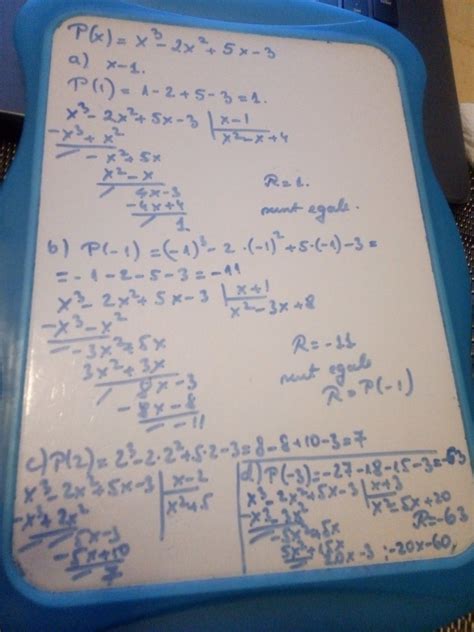 P(x) = x³ - 2x² + 5x - 3
a) x - 1.
P(1) = 1 - 2 + 5 - 3 = 1.
x³ - 2x² + 5x - 3 | x - 1
-x³ + x² | x² - x + 4
/ - x² + 5x
x² - x
/ 4x - 3 R = 1.
-4x + 4 sunt egale.
/ 1
b) P(-1) = (-1)³ - 2 · (-1)² + 5 · (-1) - 3 =
= -1 - 2 - 5 - 3 = -11
x³ - 2x² + 5x - 3 | x + 1
-x³ - x² | x² - 3x + 8
/ -3x² + 5x
3x² + 3x R = -11
/ 8x - 3 sunt egale
- 8x - 8 R = P(-1)
/ -11
c) P(2) = 2³ - 2·2² + 5·2 - 3 = 8 - 8 + 10 - 3 = 7
x³ - 2x² + 5x - 3 | x - 2
-x³ + 2x² | x² + 5
/ 5x - 3
- 5x + 10
7
d) P(-3) = -27 - 18 - 15 - 3 = -63
x³ - 2x² + 5x - 3 | x + 3
-x³ - 3x² | x² - 5x + 20
/ -5x² + 5x R = -63
5x² + 15x
/ 20x - 3 ; -20x - 60,